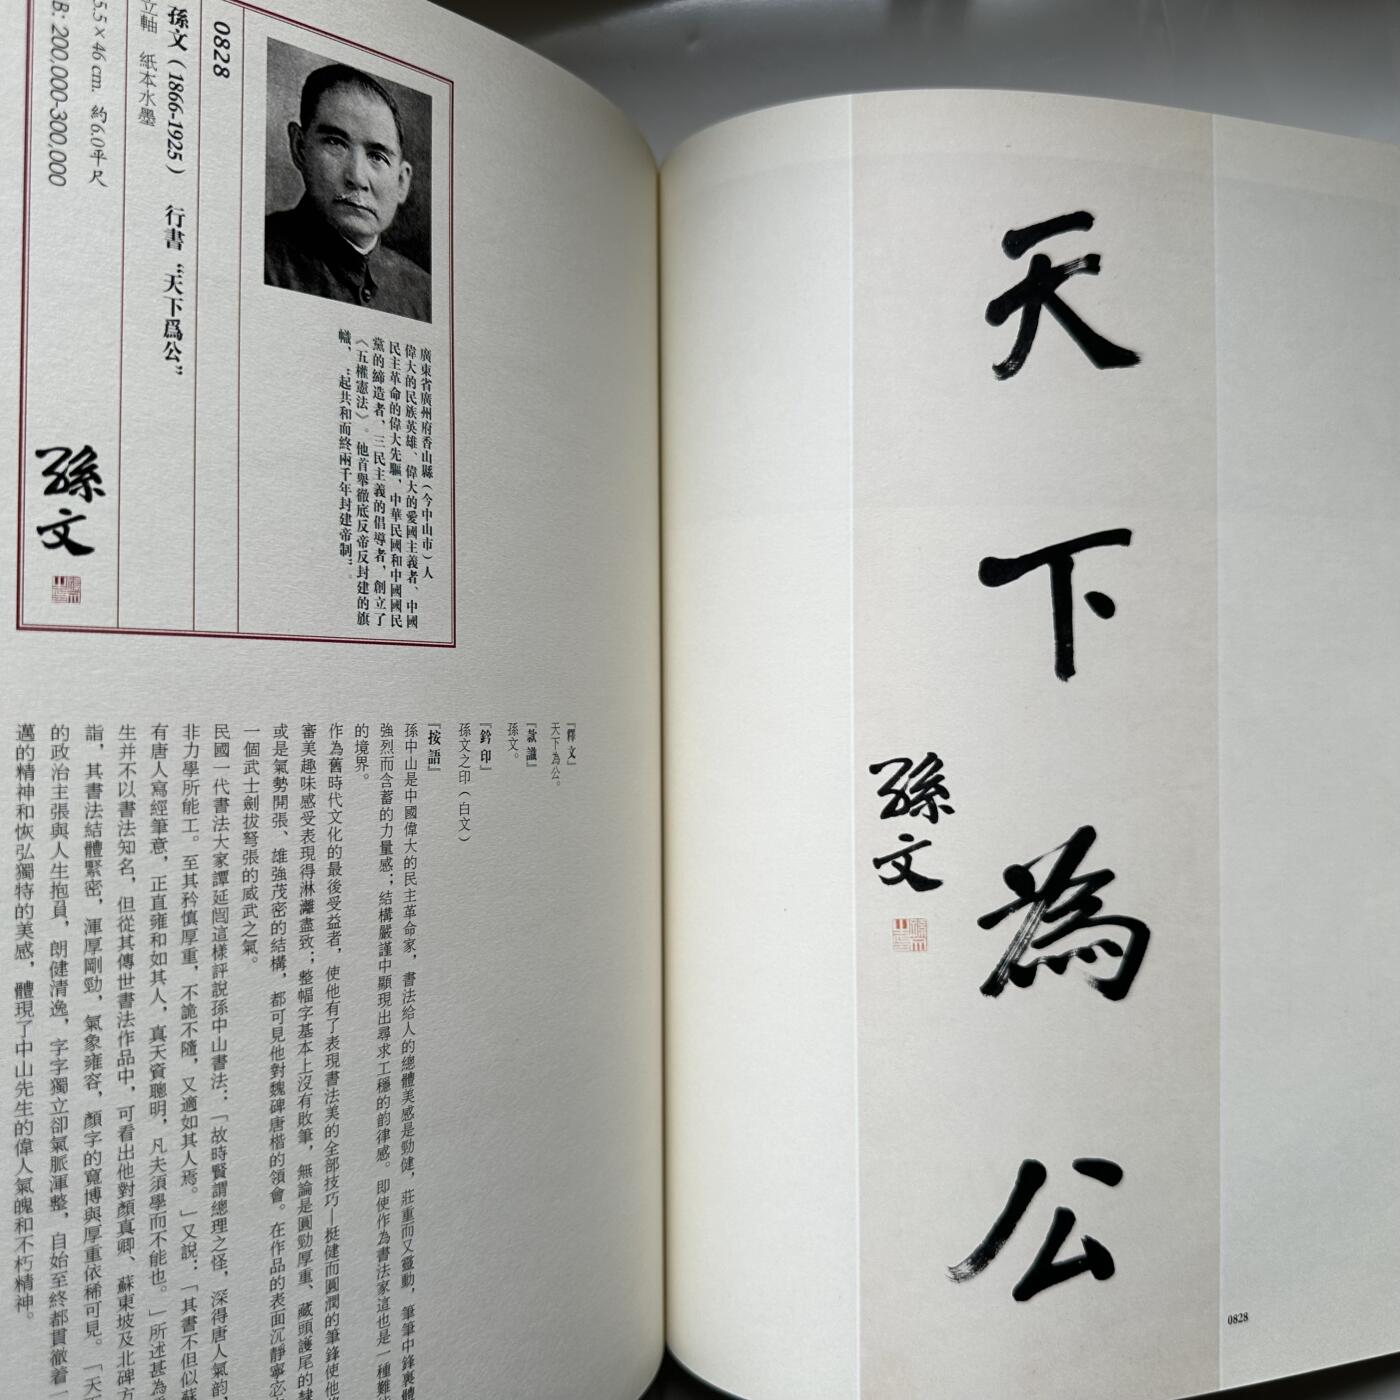 天下為公
孫文
0828
廣東省廣州府香山縣（今中山市）人
偉大的民族英雄、偉大的愛國主義者、中國
民主革命的偉大先驅，中華民國和中國國民
黨的締造者，三民主義的倡導者，創立了
《五權憲法》。他首舉徹底反帝反封建的旗
幟，“起共和而終兩千年封建帝制”。
0828
孫文（1866-1925） 行書“天下爲公”
立軸 紙本水墨
5.5×46 cm. 約6.0平尺
B: 200,000-300,000
孫文
『釋文』
天下為公。
『款識』
孫文。
『鈐印』
孫文之印（白文）
『按語』
孫中山是中國偉大的民主革命家，書法給人的總體美感是勁健，莊重而又靈動，筆筆中鋒裹體
強烈而含蓄的力量感；結構嚴謹中顯現出尋求工穩的韵律感。即使作為書法家這也是一種難
的境界。
作為舊時代文化的最後受益者，使他有了表現書法美的全部技巧—挺健而圓潤的筆鋒使他
審美趣味感受表現得淋灕盡致；整幅字基本上沒有敗筆，無論是圓勁厚重、藏頭護尾的隸
或是氣勢開張、雄強茂密的結構，都可見他對魏碑唐楷的領會。在作品的表面沉靜寧必
一個武士劍拔弩張的威武之氣。
民國一代書法大家譚延闓這樣評說孫中山書法：「故時賢謂總理之怪，深得唐人氣韵，
非力學所能工。至其矜慎厚重，不詭不隨，又適如其人焉。」又說：「其書不但似蘇
有唐人寫經筆意，正直雍和如其人，真天資聰明，凡夫須學而不能也。」所述甚為
生并不以書法知名，但從其傳世書法作品中，可看出他對顏真卿、蘇東坡及北碑方
詣，其書法結體緊密，渾厚剛勁，氣象雍容，顏字的寬博與厚重依稀可見。「天
的政治主張與人生抱負，朗健清逸，字字獨立卻氣脈渾整，自始至終都貫徹着一
邁的精神和恢弘獨特的美感，體現了中山先生的偉人氣魄和不朽精神。